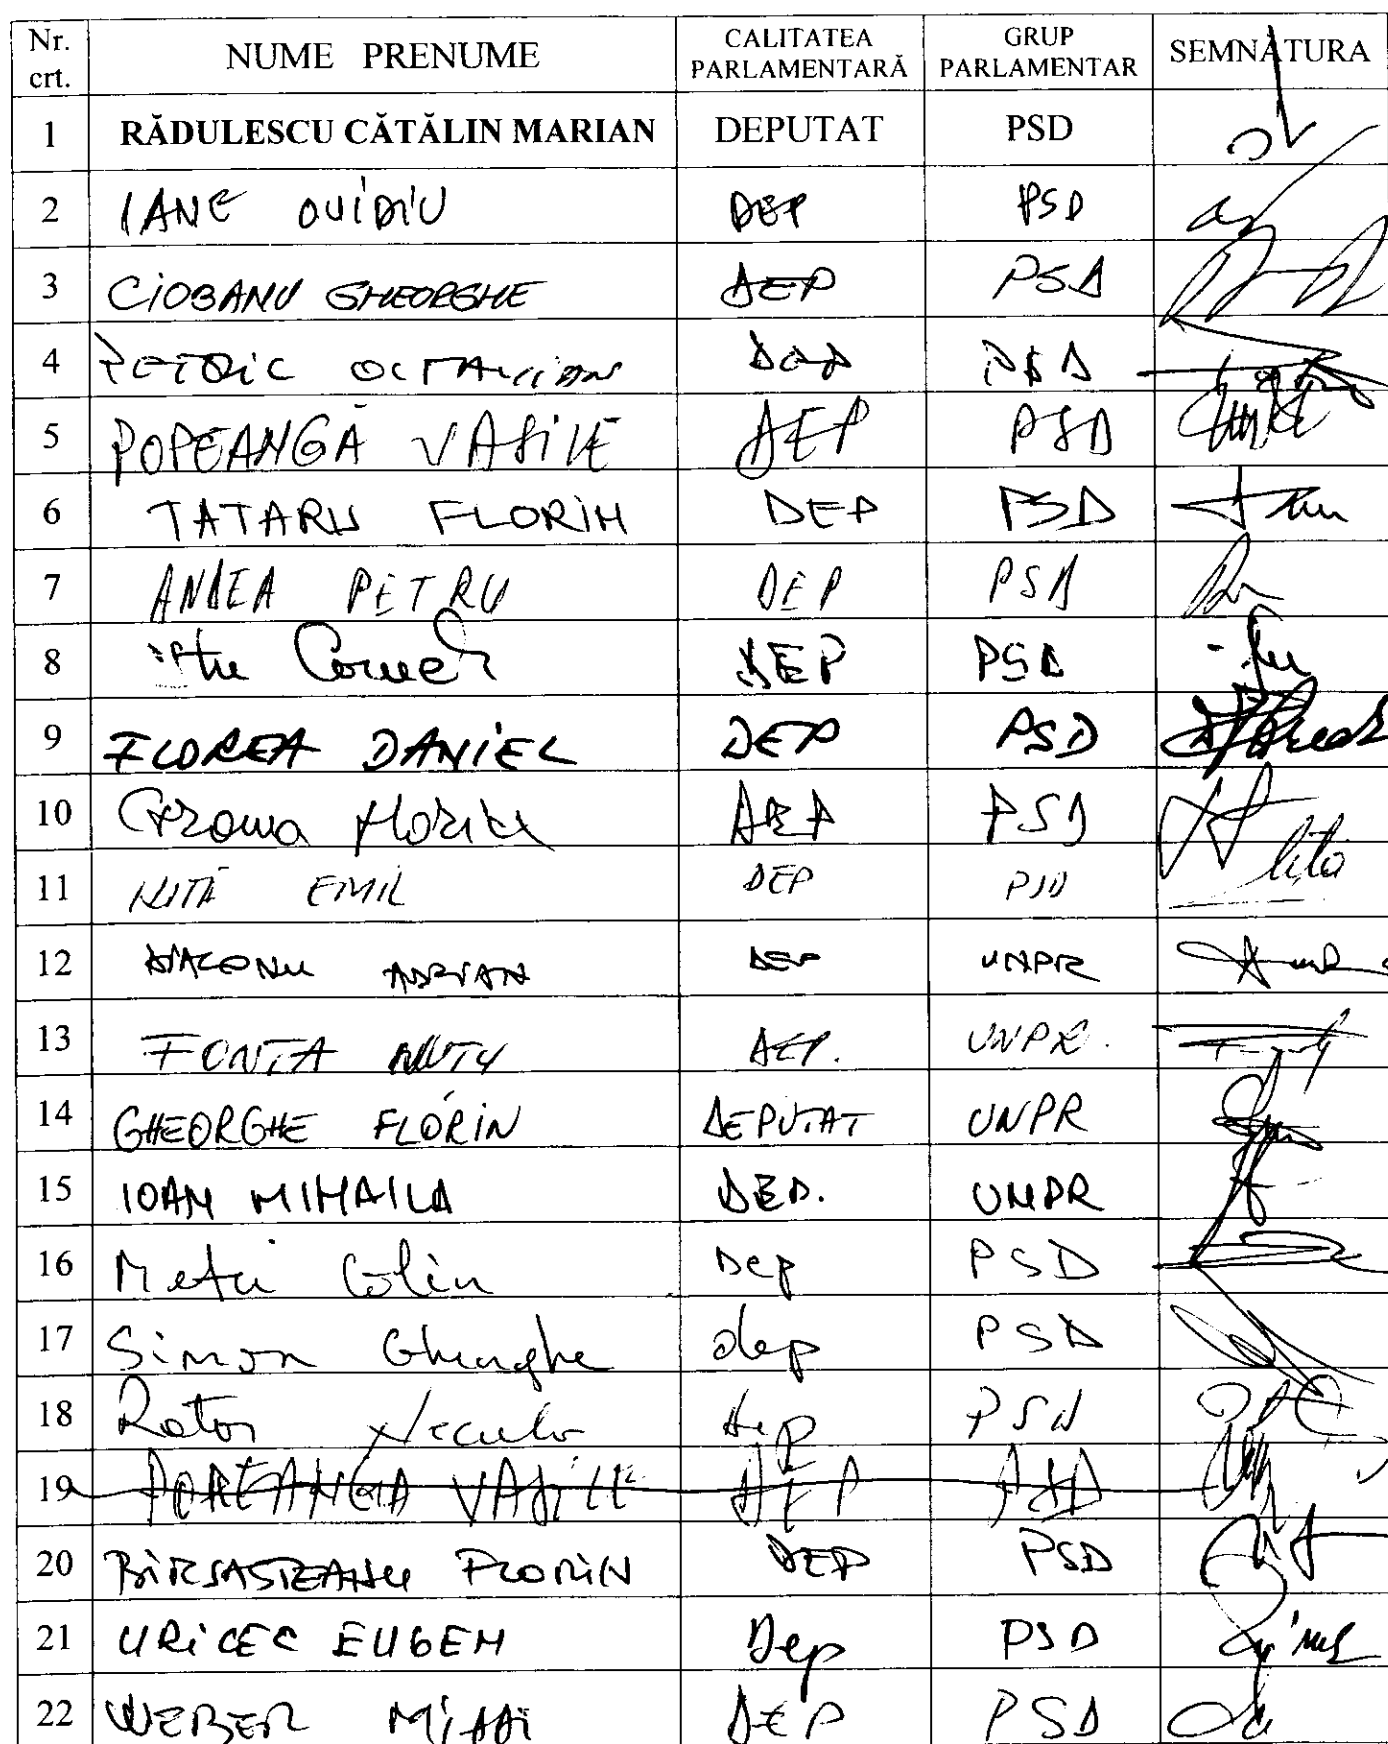 Nr. crt. NUME PRENUME CALITATEA PARLAMENTARĂ GRUP PARLAMENTAR SEMNĂTURA
1 RĂDULESCU CĂTĂLIN MARIAN DEPUTAT PSD
2 IANE OVIDIU DEP PSD
3 CIOBANU GHEORGHE DEP PSD
4 PETRIC OCTAVIAN DEP PSD
5 POPEANGĂ VASILE DEP PSD
6 TATARU FLORIN DEP PSD
7 ANDEA PETRU DEP PSD
8 DEP PSD
9 FLOREA DANIEL DEP PSD
10 Grozava DEP PSD
11 NITĂ EMIL DEP PSD
12 DIACONU ADRIAN DEP UNPR
13 FONTA NUTU DEP. UNPR.
14 GHEORGHE FLORIN DEPUTAT UNPR
15 IOAN MIHAILA DEP. UNPR
16 Colin Dep PSD
17 Simon Gheorghe dep PSD
18 Rator Necula dep PSD
19 POPEANGA VASILE DEP PSD
20 BÎRSASTEANU FLORIN DEP PSD
21 URICEC EUGEN Dep PSD
22 WEBER MIHAI DEP PSD